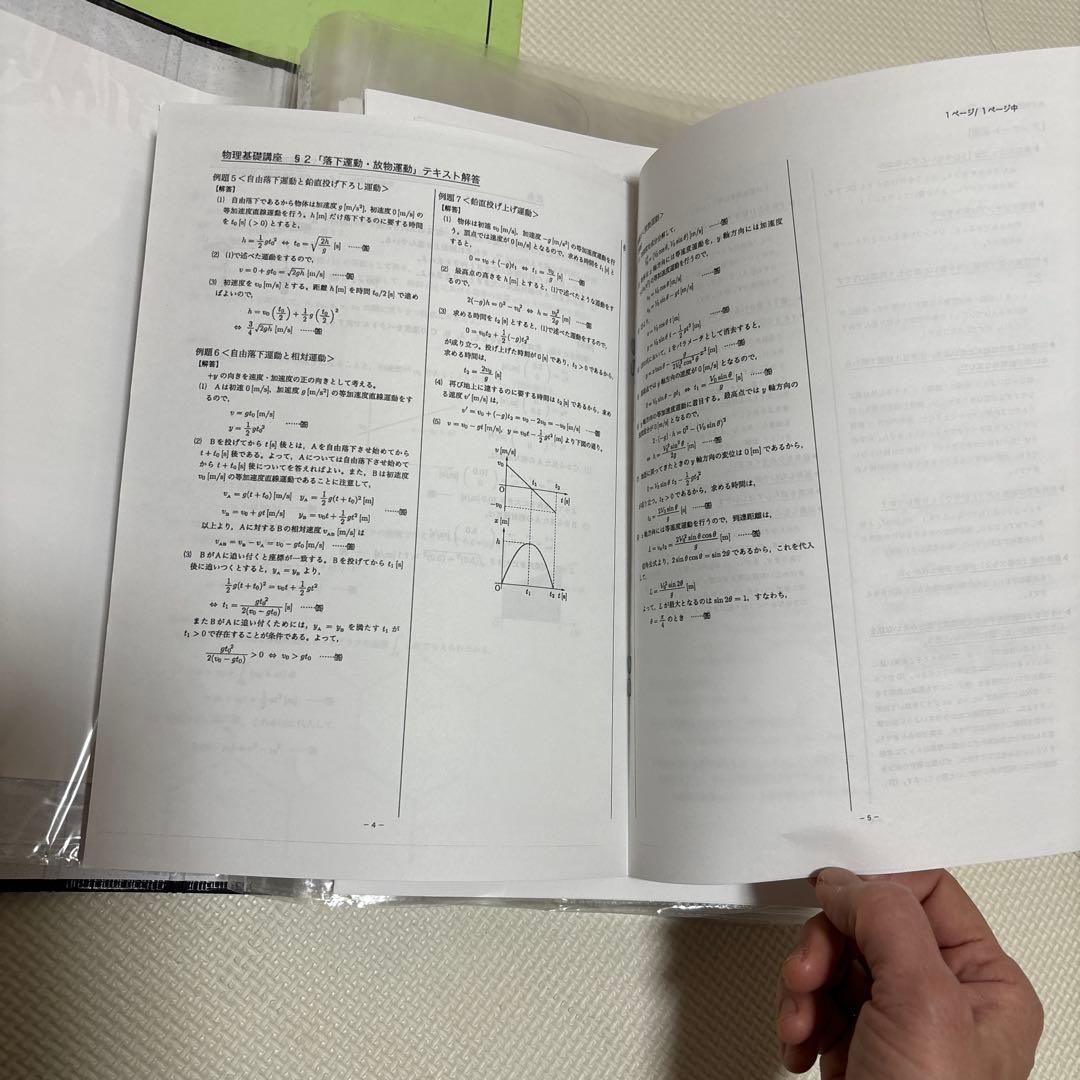 物理基礎講座 §2「落下運動・放物運動」テキスト解答
例題5<自由落下運動と鉛直投げ下ろし運動>
【解答】
(1) 自由落下であるから物体は加速度 g [m/s²], 初速度 0 [m/s] の
等加速度直線運動を行う。h [m] だけ落下するのに要する時間
を t₀ [s] (>0) とすると,
h = 1/2 gt₀² ⇔ t₀ = √(2h/g) [s] ……答
(2) (1)で述べた運動をするので,
v = 0 + gt₀ = √(2gh) [m/s] ……答
(3) 初速度を v₀ [m/s] とする。距離 h [m] を時間 t₀/2 [s] で進め
ばよいので,
h = v₀ (t₀/2) + 1/2 g (t₀/2)²
⇔ 3/4 √(2gh) [m/s] ……答
例題6<自由落下運動と相対運動>
【解答】
+y の向きを速度・加速度の正の向きとして考える。
(1) Aは初速 0 [m/s], 加速度 g [m/s²] の等加速度直線運動をす
るので,
v = gt₀ [m/s]
y = 1/2 gt₀² ……答
(2) Bを投げてから t [s] 後とは, Aを自由落下させ始めてから
t + t₀ [s] 後である。よって, Aについては自由落下させ始めて
から t + t₀ [s] 後について答えればよい。また, Bは初速度
v₀ [m/s] の等加速度直線運動であることに注意して,
v_A = g(t + t₀) [m/s] y_A = 1/2 g(t + t₀)² [m]
v_B = v₀ + gt [m/s] y_B = v₀t + 1/2 gt² [m] ……答
以上より, Aに対するBの相対速度 v_AB [m/s] は
v_AB = v_B − v_A = v₀ − gt₀ [m/s] ……答
(3) BがAに追い付くと座標が一致する。Bを投げてから t₁ [s]
後に追いつくとすると, y_A = y_B より,
1/2 g(t + t₀)² = v₀t + 1/2 gt²
⇔ t₁ = gt₀²/2(v₀ − gt₀) [s] ……答
またBがAに追い付くためには, y_A = y_B を満たす t₁ が
t₁ > 0 で存在することが条件である。よって,
gt₀²/2(v₀ − gt₀) > 0 ⇔ v₀ > gt₀ ……答
例題7<鉛直投げ上げ運動>
【解答】
(1) 物体は初速 v₀ [m/s], 加速度 −g [m/s²] の等加速度運動を行
う。頂点では速度が 0 [m/s] となるので, 求める時間を t₁ [s] と
すると,
0 = v₀ + (−g)t₁ ⇔ t₁ = v₀/g [s] ……答
(2) 最高点の高さを h [m] とすると, (1)で述べたような運動をす
るので,
2(−g)h = 0² − v₀² ⇔ h = v₀²/2g [m] ……答
(3) 求める時間を t₂ [s] とすると, (1)で述べた運動をするので,
0 = v₀t₂ + 1/2 (−g)t₂²
が成り立つ。投げ上げた時刻が 0 [s] であり, t₂ > 0 であるから,
求める時間は,
t₂ = 2v₀/g [s] ……答
(4) 再び地上に達するのに要する時間は t₂ [s] であるから, 求め
る速度 v′ [m/s] は,
v′ = v₀ + (−g)t₂ = v₀ − 2v₀ = −v₀ [m/s] ……答
(5) v = v₀ − gt [m/s], y = v₀t − 1/2 gt² [m] より下図の通り。
v [m/s]
v₀
t₁ t₂
O t [s]
−v₀
x [m]
h
O t₁ t₂ t [s]
− 4 −
1ページ/1ページ中
軸方向には等速度運動を, y 軸方向には加速度
の等加速度運動を行うので,
= V₀ cos θ [m/s]
= V₀ sin θ − gt [m/s] ……答
において, t をパラメータとして消去すると,
軸方向の速度が 0 [m/s] となるので,
t₁ = V₀ sin θ/g [s] ……答
の等加速度運動に着目する。最高点では y 軸方向の
が 0 [m/s] となるので,
2・(−g)・h = 0² − (V₀ sin θ)²
⇔ h = V₀² sin² θ/2g [m] ……答
ってきたときの y 軸方向の変位は 0 [m] であるから,
り立つ。t₂ > 0 であるから, 求める時間は,
t₂ = 2V₀ sin θ/g [s] ……答
軸方向には等速度運動を行うので, 到達距離は,
2V₀² sin θ cos θ/g [m] ……答
角公式より, 2 sin θ cos θ = sin 2θ であるから, これを代入
して,
L = V₀² sin 2θ/g [m]
よって, L が最大となるのは sin 2θ = 1, すなわち,
θ = π/4 のとき ……答
− 5 −